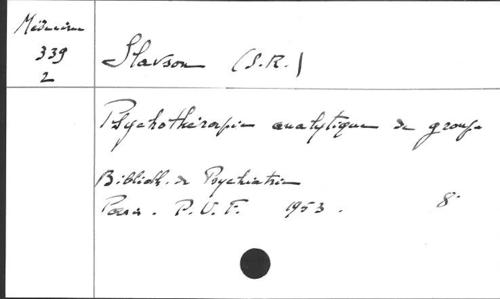 Médecine
339
2
Slavson (S.R.)
Psychothérapie analytique de groupe
Biblioth. de Psychiatrie
Paris. P.U.F. 1953. 8°